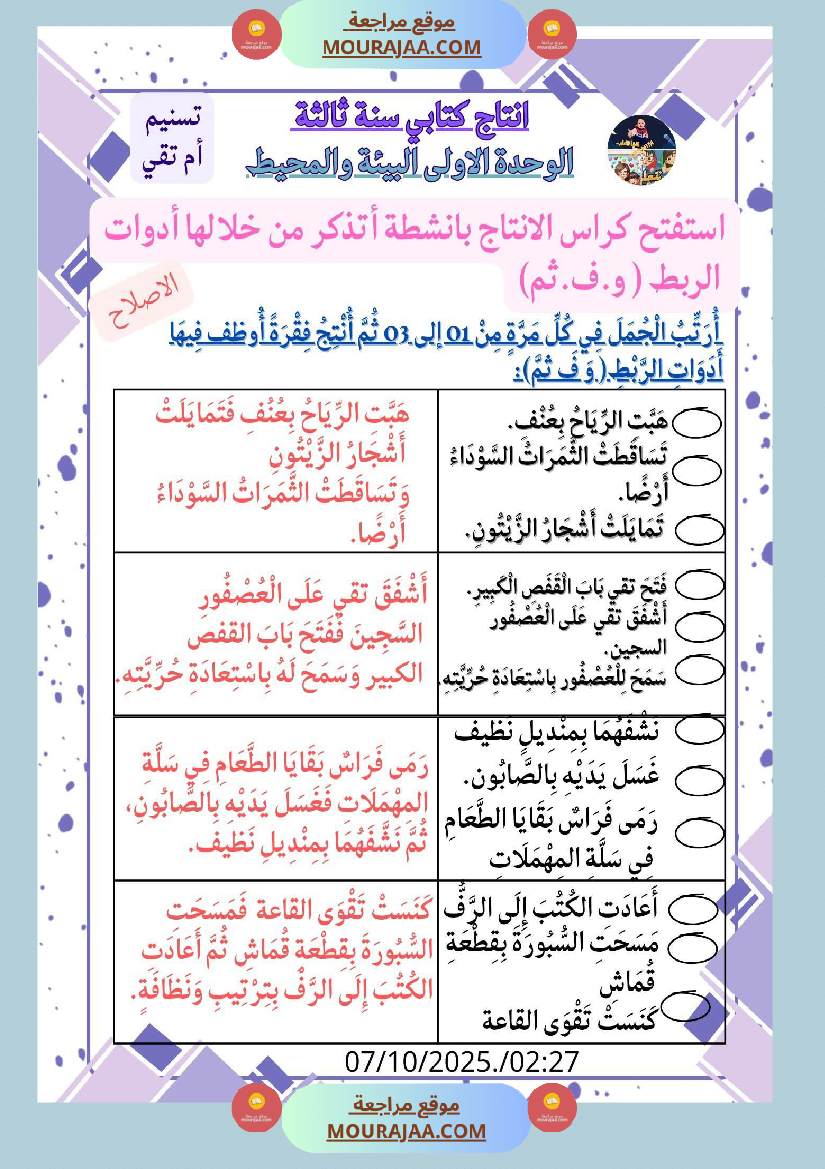 موقع مراجعة
MOURAJAA.COM
انتاج كتابي سنة ثالثة
الوحدة الاولى البيئة والمحيط
تسنيم
أم تقي
استفتح كراس الانتاج بانشطة أتذكر من خلالها أدوات
الربط ( و.ف.ثم)
الاصلاح
أُرَتِّبُ الْجُمَلَ فِي كُلِّ مَرَّةٍ مِنْ 01 إلى 03 ثُمَّ أُنْتِجُ فِقْرَةً أُوظف فِيهَا
أَدَوَاتِ الرَّبْطِ( وَ فَ ثمَّ):
هَبَّتِ الرِّيَاحُ بِعُنْفٍ.
تَسَاقَطَتْ الثَّمَرَاتُ السَّوْدَاءُ
أَرْضًا.
تَمَايَلَتْ أَشْجَارُ الزَّيْتُونِ.
هَبَّتِ الرِّيَاحُ بِعُنُفِ فَتَمَايَلَتْ
أَشْجَارُ الزَّيْتُونِ
وَتَسَاقَطَتْ الثَّمَرَاتُ السَّوْدَاءُ
أَرْضًا.
فَتَحَ تقي بَابَ الْقَفَصِ الْكَبِيرِ.
أَشْفَقَ تقي عَلَى الْعُصْفُور
السجين.
سَمَحَ لِلْعُصْفُور بِاسْتِعَادَةِ حُرِّيَّتِهِ.
أَشْفَقَ تقي عَلَى الْعُصْفُورِ
السَّجِينَ فَفَتَحَ بَابَ القفص
الكبير وَسَمَحَ لَهُ بِاسْتِعَادَةِ حُرِّيَّتِهِ.
نَشَّفَهُمَا بِمِنْدِيلٍ نَظيف
غَسَلَ يَدَيْهِ بِالصَّابُون.
رَمَى فَرَاسٌ بَقَايَا الطَّعَامِ
فِي سَلَّةِ المِهْمَلَاتِ
رَمَى فَرَاسٌ بَقَايَا الطَّعَامِ فِي سَلَّةِ
المِهْمَلَاتِ فَغَسَلَ يَدَيْهِ بِالصَّابُونِ،
ثُمَّ نَشَّفَهُمَا بِمِنْدِيلِ نَظيف.
أَعَادَتِ الكُتُبَ إِلَى الرَّفُّ
مَسَحَتِ السُّبُورَةَ بِقِطْعَةِ
قُمَاشِ
كَنَسَتْ تَقْوَى القاعة
كَنَسَتْ تَقْوَى القاعة فَمَسَحَتِ
السُّبُورَةَ بِقِطْعَة قُمَاشِ ثُمَّ أَعَادَتِ
الكُتُبَ إِلَى الرَّفُّ بِتِرْتِيبِ وَنَظَافَةٍ.
07/10/2025./02:27
موقع مراجعة
MOURAJAA.COM